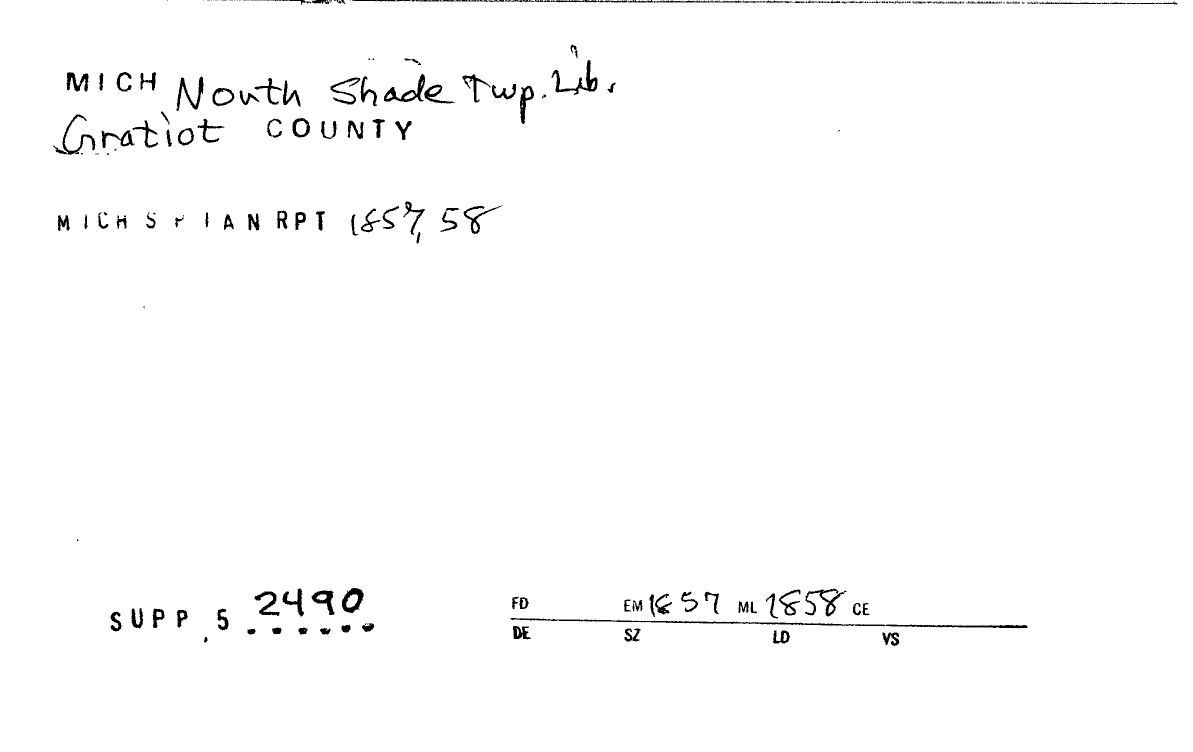 MICH North Shade Twp. Lib.
Gratiot COUNTY
MICH S P I AN RPT 1857, 58
SUPP, 5 2490
FD EM 1857 ML 1858 CE
DE SZ LD VS